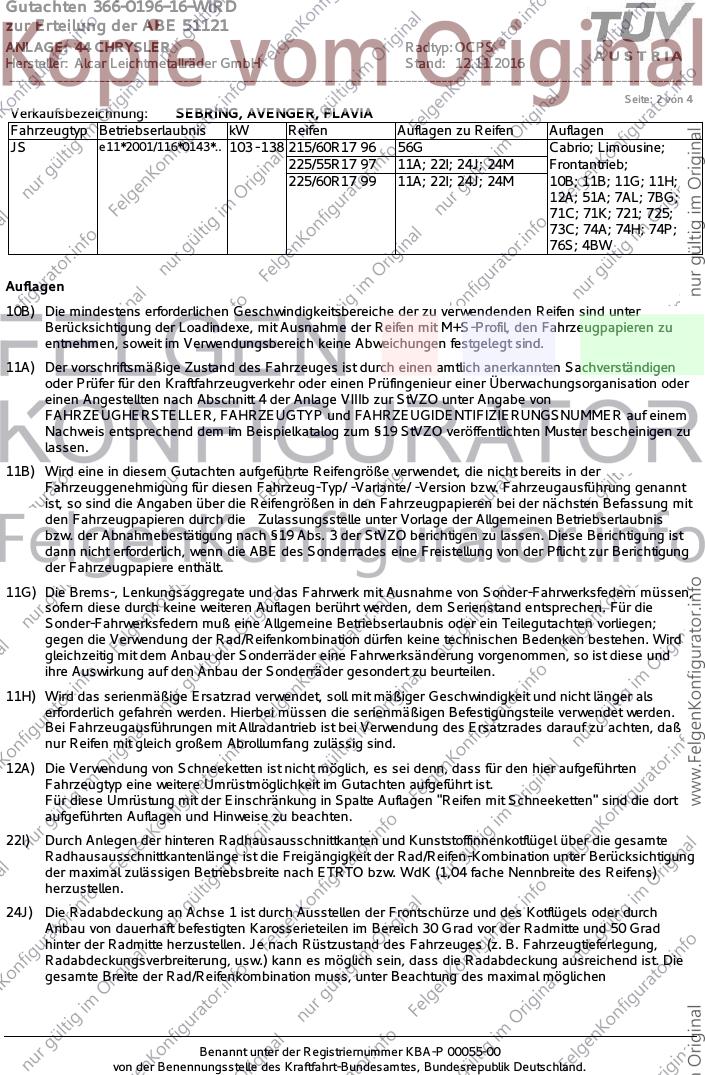 Gutachten 366-0196-16-WIRD
zur Erteilung der ABE 51121
ANLAGE: 44 CHRYSLER
Radtyp: OCPS
Hersteller: Alcar Leichtmetallräder GmbH
Stand: 12.11.2016
TÜV
AUSTRIA
Kopie vom Original
Seite: 2 von 4
Verkaufsbezeichnung: SEBRING, AVENGER, FLAVIA
Fahrzeugtyp Betriebserlaubnis kW Reifen Auflagen zu Reifen Auflagen
JS e11*2001/116*0143*.. 103-138 215/60R17 96 56G Cabrio; Limousine;
225/55R17 97 11A; 22I; 24J; 24M Frontantrieb;
225/60R17 99 11A; 22I; 24J; 24M 10B; 11B; 11G; 11H;
12A; 51A; 7AL; 7BG;
71C; 71K; 721; 725;
73C; 74A; 74H; 74P;
76S; 4BW
Auflagen
10B) Die mindestens erforderlichen Geschwindigkeitsbereiche der zu verwendenden Reifen sind unter
Berücksichtigung der Loadindexe, mit Ausnahme der Reifen mit M+S-Profil, den Fahrzeugpapieren zu
entnehmen, soweit im Verwendungsbereich keine Abweichungen festgelegt sind.
11A) Der vorschriftsmäßige Zustand des Fahrzeuges ist durch einen amtlich anerkannten Sachverständigen
oder Prüfer für den Kraftfahrzeugverkehr oder einen Prüfingenieur einer Überwachungsorganisation oder
einen Angestellten nach Abschnitt 4 der Anlage VIIIb zur StVZO unter Angabe von
FAHRZEUGHERSTELLER, FAHRZEUGTYP und FAHRZEUGIDENTIFIZIERUNGSNUMMER auf einem
Nachweis entsprechend dem im Beispielkatalog zum §19 StVZO veröffentlichten Muster bescheinigen zu
lassen.
11B) Wird eine in diesem Gutachten aufgeführte Reifengröße verwendet, die nicht bereits in der
Fahrzeuggenehmigung für diesen Fahrzeug-Typ/ -Variante/ -Version bzw. Fahrzeugausführung genannt
ist, so sind die Angaben über die Reifengrößen in den Fahrzeugpapieren bei der nächsten Befassung mit
den Fahrzeugpapieren durch die Zulassungsstelle unter Vorlage der Allgemeinen Betriebserlaubnis
bzw. der Abnahmebestätigung nach §19 Abs. 3 der StVZO berichtigen zu lassen. Diese Berichtigung ist
dann nicht erforderlich, wenn die ABE des Sonderrades eine Freistellung von der Pflicht zur Berichtigung
der Fahrzeugpapiere enthält.
11G) Die Brems-, Lenkungsaggregate und das Fahrwerk mit Ausnahme von Sonder-Fahrwerksfedern müssen,
sofern diese durch keine weiteren Auflagen berührt werden, dem Serienstand entsprechen. Für die
Sonder-Fahrwerksfedern muß eine Allgemeine Betriebserlaubnis oder ein Teilegutachten vorliegen;
gegen die Verwendung der Rad/Reifenkombination dürfen keine technischen Bedenken bestehen. Wird
gleichzeitig mit dem Anbau der Sonderräder eine Fahrwerksänderung vorgenommen, so ist diese und
ihre Auswirkung auf den Anbau der Sonderräder gesondert zu beurteilen.
11H) Wird das serienmäßige Ersatzrad verwendet, soll mit mäßiger Geschwindigkeit und nicht länger als
erforderlich gefahren werden. Hierbei müssen die serienmäßigen Befestigungsteile verwendet werden.
Bei Fahrzeugausführungen mit Allradantrieb ist bei Verwendung des Ersatzrades darauf zu achten, daß
nur Reifen mit gleich großem Abrollumfang zulässig sind.
12A) Die Verwendung von Schneeketten ist nicht möglich, es sei denn, dass für den hier aufgeführten
Fahrzeugtyp eine weitere Umrüstmöglichkeit im Gutachten aufgeführt ist.
Für diese Umrüstung mit der Einschränkung in Spalte Auflagen "Reifen mit Schneeketten" sind die dort
aufgeführten Auflagen und Hinweise zu beachten.
22I) Durch Anlegen der hinteren Radhausausschnittkanten und Kunststoffinnenkotflügel über die gesamte
Radhausausschnittkantenlänge ist die Freigängigkeit der Rad/Reifen-Kombination unter Berücksichtigung
der maximal zulässigen Betriebsbreite nach ETRTO bzw. WdK (1,04 fache Nennbreite des Reifens)
herzustellen.
24J) Die Radabdeckung an Achse 1 ist durch Ausstellen der Frontschürze und des Kotflügels oder durch
Anbau von dauerhaft befestigten Karosserieteilen im Bereich 30 Grad vor der Radmitte und 50 Grad
hinter der Radmitte herzustellen. Je nach Rüstzustand des Fahrzeuges (z. B. Fahrzeugtieferlegung,
Radabdeckungsverbreiterung, usw.) kann es möglich sein, dass die Radabdeckung ausreichend ist. Die
gesamte Breite der Rad/Reifenkombination muss, unter Beachtung des maximal möglichen
Benannt unter der Registriernummer KBA-P 00055-00
von der Benennungsstelle des Kraftfahrt-Bundesamtes, Bundesrepublik Deutschland.
FELGEN
KONFIGURATOR
FelgenKonfigurator.info
nur gültig im Original
www.FelgenKonfigurator.info